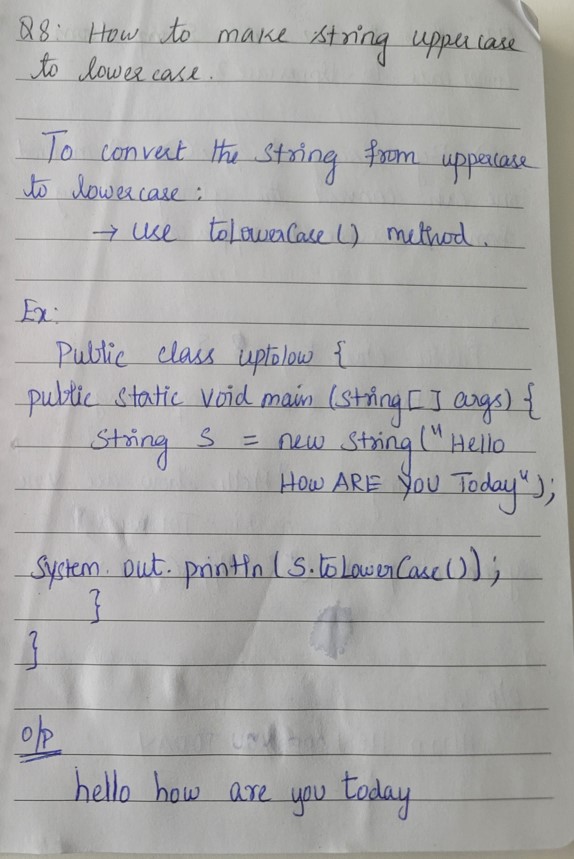 Q8: How to make string uppercase
to lowercase.
To convert the string from uppercase
to lowercase:
→ use toLowerCase() method.
Ex:
Public class uptolow {
public static void main (string[] args) {
String S = new String("Hello
HOW ARE YOU Today");
System.out.println(S.toLowerCase());
}
}
o/p
hello how are you today